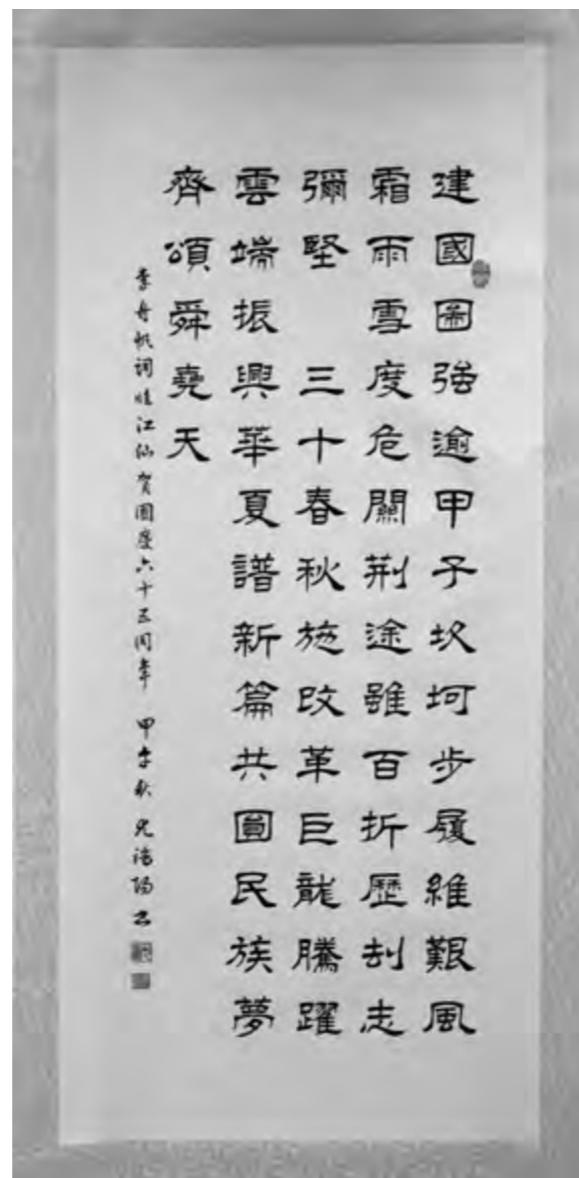 建國圖強逾甲子坎坷步履維艱風
霜雨雪度危關荆途雖百折歷劫志
彌堅 三十春秋施改革巨龍騰躍
雲端振興華夏譜新篇共圓民族夢
齊頌舜堯天
舟帆詞臨江仙賀國慶六十五周年 甲午秋